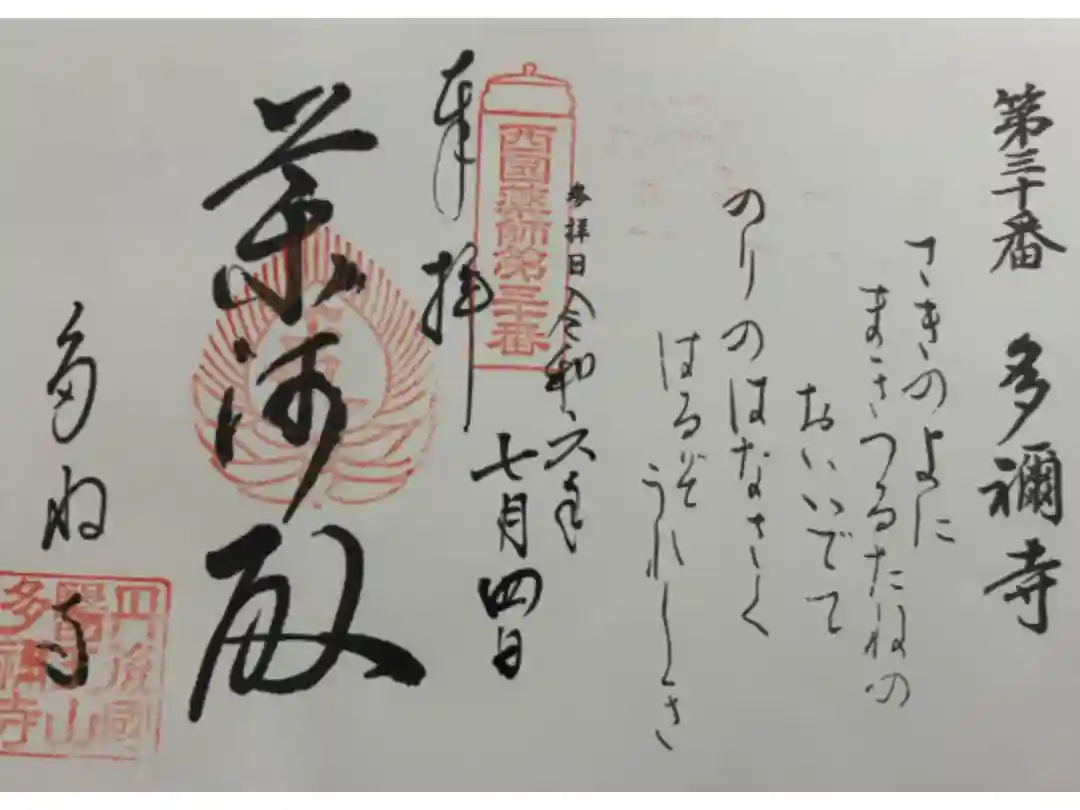 第三十番 多禰寺
さきのよに
まきつるたねの
おいいでて
のりのはなさく
はるぞ
うれしき
参拝日 令和六年
七月四日
西國薬師第三十番
奉拝
薬師殿
多ね寺
丹後國
多禰寺